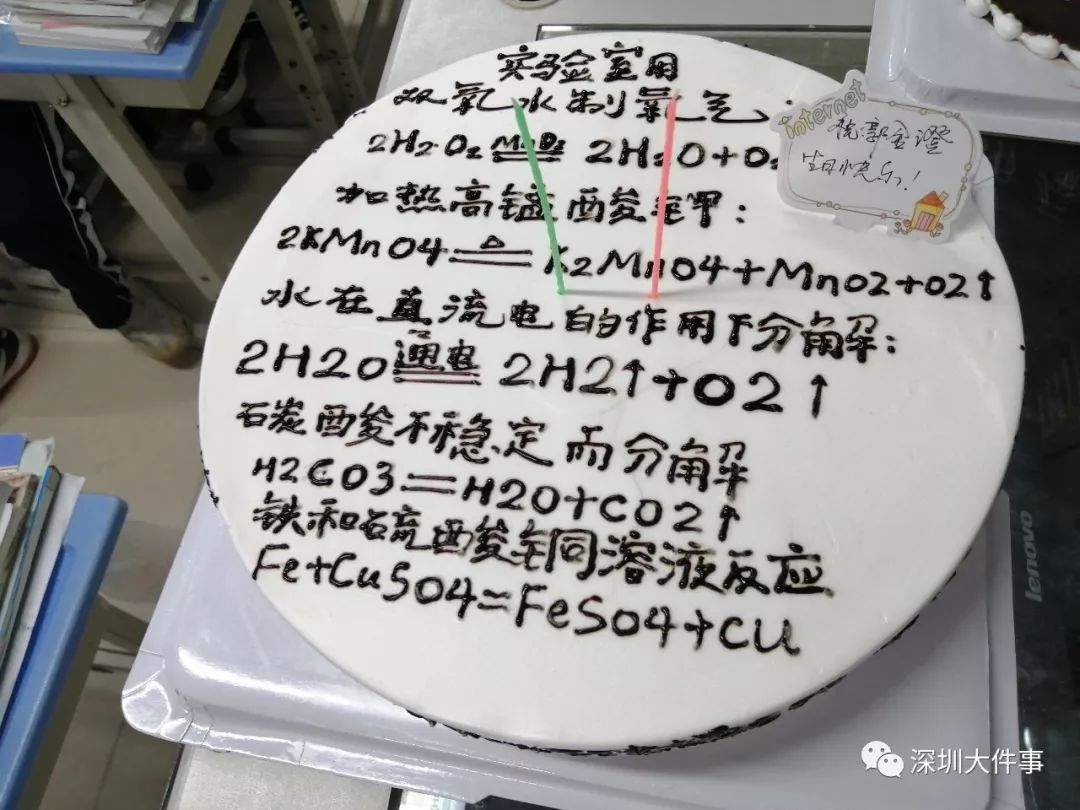 实验室用
双氧水制氧气
2H2O2 MnO2 2H2O+O2
加热高锰酸钾:
2KMnO4 △ K2MnO4+MnO2+O2↑
水在直流电的作用下分解:
2H2O 通电 2H2↑+O2↑
石炭酸不稳定而分解
H2CO3=H2O+CO2↑
铁和硫酸铜溶液反应
Fe+CuSO4=FeSO4+Cu
internet
生日快乐!
lenovo
深圳大件事